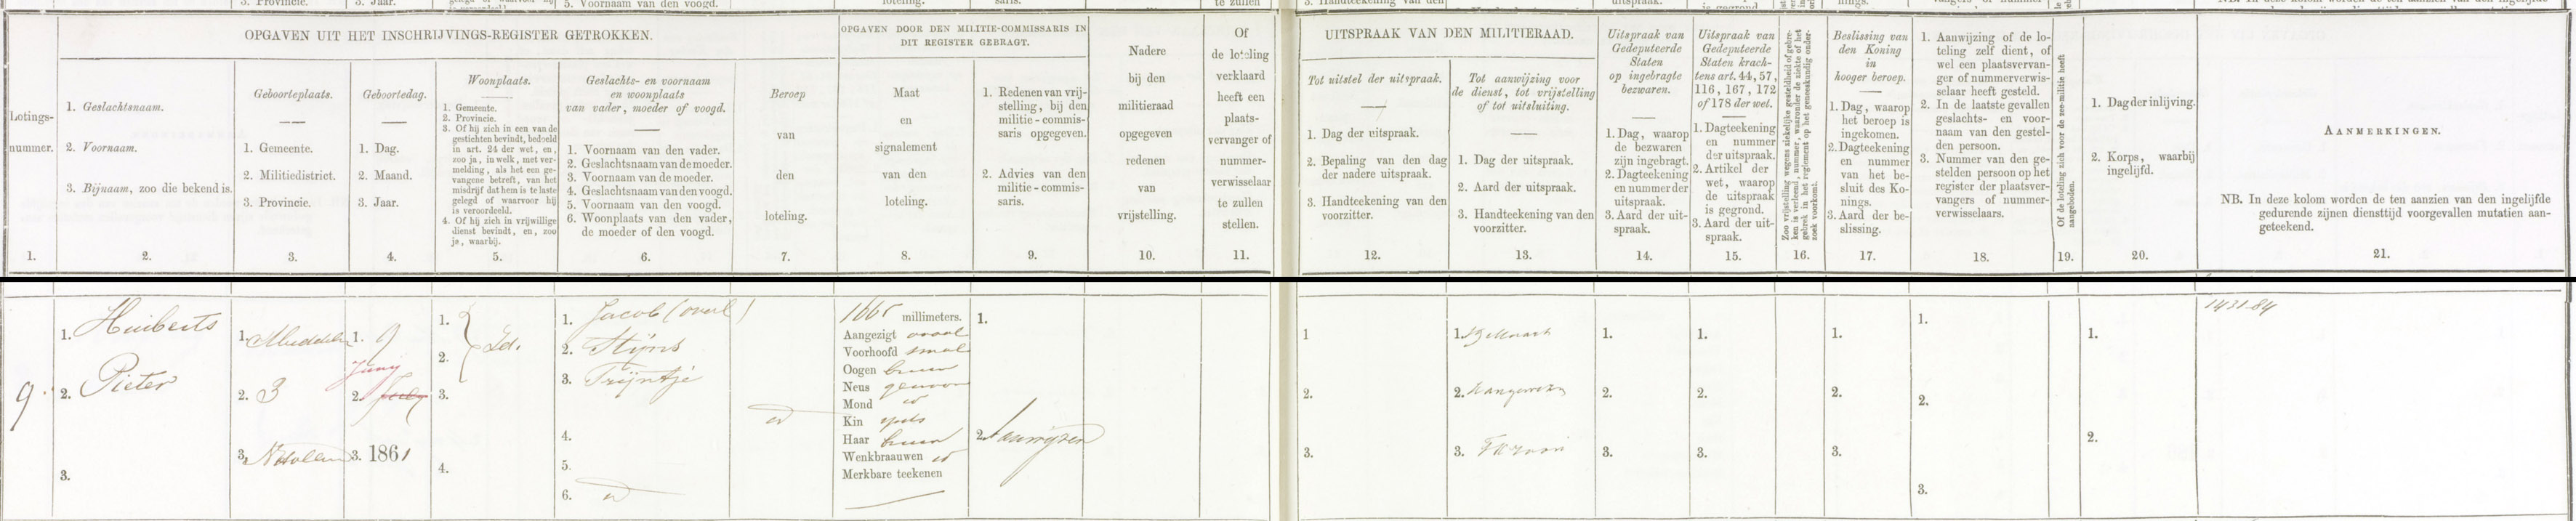 OPGAVEN UIT HET INSCHRIJVINGS-REGISTER GETROKKEN.
OPGAVEN DOOR DEN MILITIE-COMMISSARIS IN
DIT REGISTER GEBRAGT.
Lotings-
nummer.
1.
1. Geslachtsnaam.
2. Voornaam.
3. Bijnaam, zoo die bekend is.
2.
Geboorteplaats.
1. Gemeente.
2. Militiedistrict.
3. Provincie.
3.
Geboortedag.
1. Dag.
2. Maand.
3. Jaar.
4.
Woonplaats.
1. Gemeente.
2. Provincie.
3. Of hij zich in een van de
gestichten bevindt, bedoeld
in art. 24 der wet, en,
zoo ja, in welk, met ver-
melding, als het een ge-
vangene betreft, van het
misdrijf dat hem is te laste
gelegd of waarvoor hij
is veroordeeld.
4. Of hij zich in vrijwillige
dienst bevindt, en, zoo
ja, waarbij.
5.
Geslachts- en voornaam
en woonplaats
van vader, moeder of voogd.
1. Voornaam van den vader.
2. Geslachtsnaam van de moeder.
3. Voornaam van de moeder.
4. Geslachtsnaam van den voogd.
5. Voornaam van den voogd.
6. Woonplaats van den vader,
de moeder of den voogd.
6.
Beroep
van
den
loteling.
7.
Maat
en
signalement
van den
loteling.
8.
1. Redenen van vrij-
stelling, bij den
militie-commis-
saris opgegeven.
2. Advies van den
militie-commis-
saris.
9.
Nadere
bij den
militieraad
opgegeven
redenen
van
vrijstelling.
10.
Of
de loteling
verklaard
heeft een
plaats-
vervanger of
nummer-
verwisselaar
te zullen
stellen.
11.
UITSPRAAK VAN DEN MILITIERAAD.
Tot uitstel der uitspraak.
1. Dag der uitspraak.
2. Bepaling van den dag
der nadere uitspraak.
3. Handteekening van den
voorzitter.
12.
Tot aanwijzing voor
de dienst, tot vrijstelling
of tot uitsluiting.
1. Dag der uitspraak.
2. Aard der uitspraak.
3. Handteekening van den
voorzitter.
13.
Uitspraak van
Gedeputeerde
Staten
op ingebragte
bezwaren.
1. Dag, waarop
de bezwaren
zijn ingebragt.
2. Dagteekening
en nummer der
uitspraak.
3. Aard der uit-
spraak.
14.
Uitspraak van
Gedeputeerde
Staten krach-
tens art. 44, 57,
116, 167, 172
of 178 der wet.
1. Dagteekening
en nummer
der uitspraak.
2. Artikel der
wet, waarop
de uitspraak
is gegrond.
3. Aard der uit-
spraak.
15.
Zoo vrijstelling wegens ziekelijke gesteldheid of gebre-
ken is verleend, nummer, waaronder de ziekte of het
gebrek in het reglement op het geneeskundig onder-
zoek voorkomt.
16.
Beslissing van
den Koning
in
hooger beroep.
1. Dag, waarop
het beroep is
ingekomen.
2. Dagteekening
en nummer
van het be-
sluit des Ko-
nings.
3. Aard der be-
slissing.
17.
1. Aanwijzing of de lo-
teling zelf dient, of
wel een plaatsvervan-
ger of nummerverwis-
selaar heeft gesteld.
2. In de laatste gevallen
geslachts- en voor-
naam van den gestel-
den persoon.
3. Nummer van den ge-
stelden persoon op het
register der plaatsver-
vangers of nummer-
verwisselaars.
18.
Of de loteling zich voor de zee-militie heeft
aangeboden.
19.
1. Dag der inlijving.
2. Korps, waarbij
ingelijfd.
20.
AANMERKINGEN.
NB. In deze kolom worden de ten aanzien van den ingelijfde
gedurende zijnen diensttijd voorgevallen mutatien aan-
geteekend.
21.
9.
1. Huiberts
2. Pieter
3.
1.
2. 3
3. NHolland
1. 9
Juny
2. July
3. 1861
1.
2.
Id.
3.
4.
1. Jacob (overl)
2. Stijns
3. Trijntje
4.
5.
6. id
id
1665 millimeters.
Aangezigt ovaal
Voorhoofd smal
Oogen bruin
Neus gewoon
Mond id
Kin spits
Haar bruin
Wenkbraauwen id
Merkbare teekenen
1.
2. Aanwijzen
1
2.
3.
1. Maart
2. Aangewezen
3.
1.
2.
3.
1.
2.
3.
1.
2.
3.
1.
2.
3.
1.
2.
1431-84